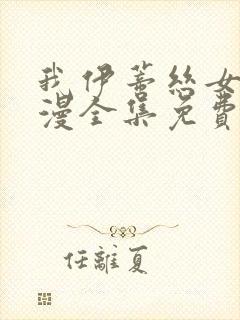 我伊蒂丝女
漫全集免費
任離夏